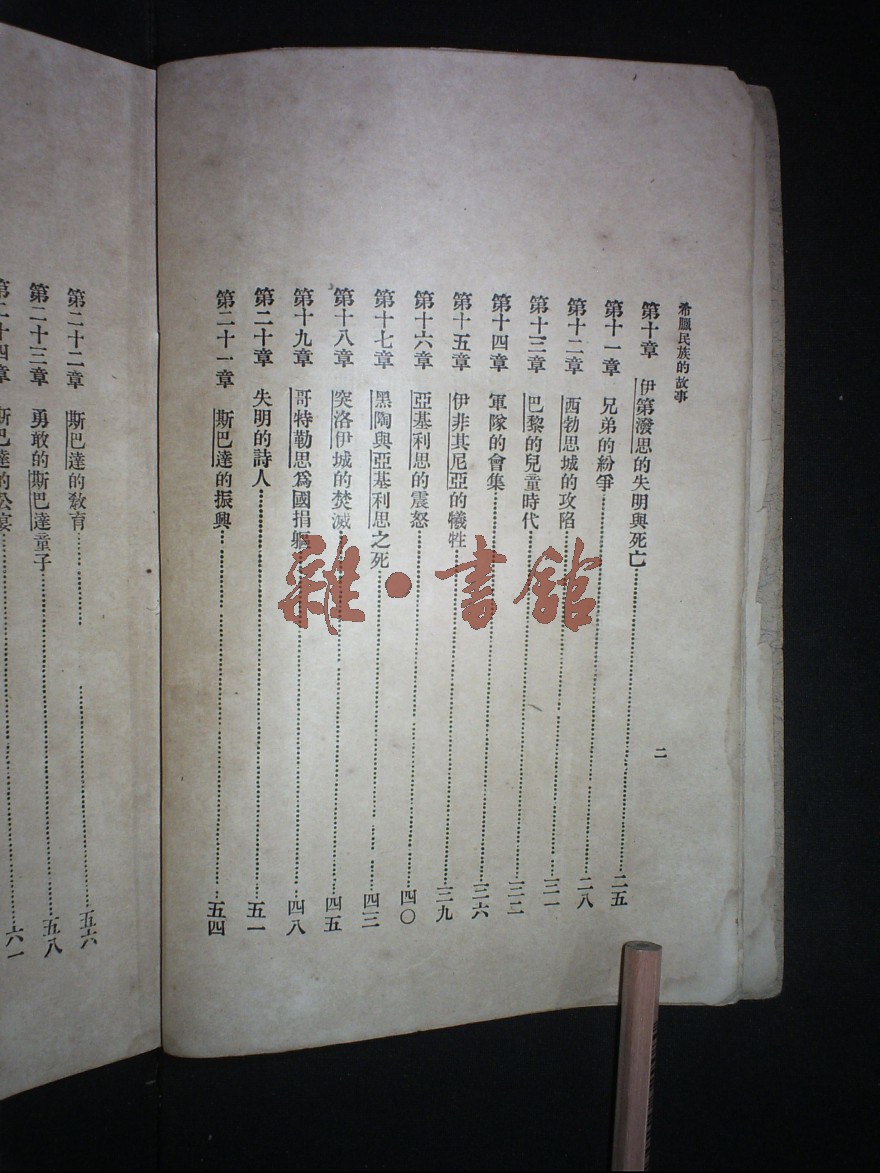 希臘民族的故事
二
第十章 伊第潑思的失明與死亡……二五
第十一章 兄弟的紛爭……二八
第十二章 西勃思城的攻陷……三一
第十三章 巴黎的兒童時代……三三
第十四章 軍隊的會集……三六
第十五章 伊非其尼亞的犧牲……三九
第十六章 亞基利思的震怒……四〇
第十七章 黑陶與亞基利思之死……四三
第十八章 突洛伊城的焚滅……四五
第十九章 哥特勒思爲國捐軀……四八
第二十章 失明的詩人……五一
第二十一章 斯巴達的振興……五四
第二十二章 斯巴達的敎育……五六
第二十三章 勇敢的斯巴達童子……五八
第二十四章 斯巴達的公宴……六一
雜·書館